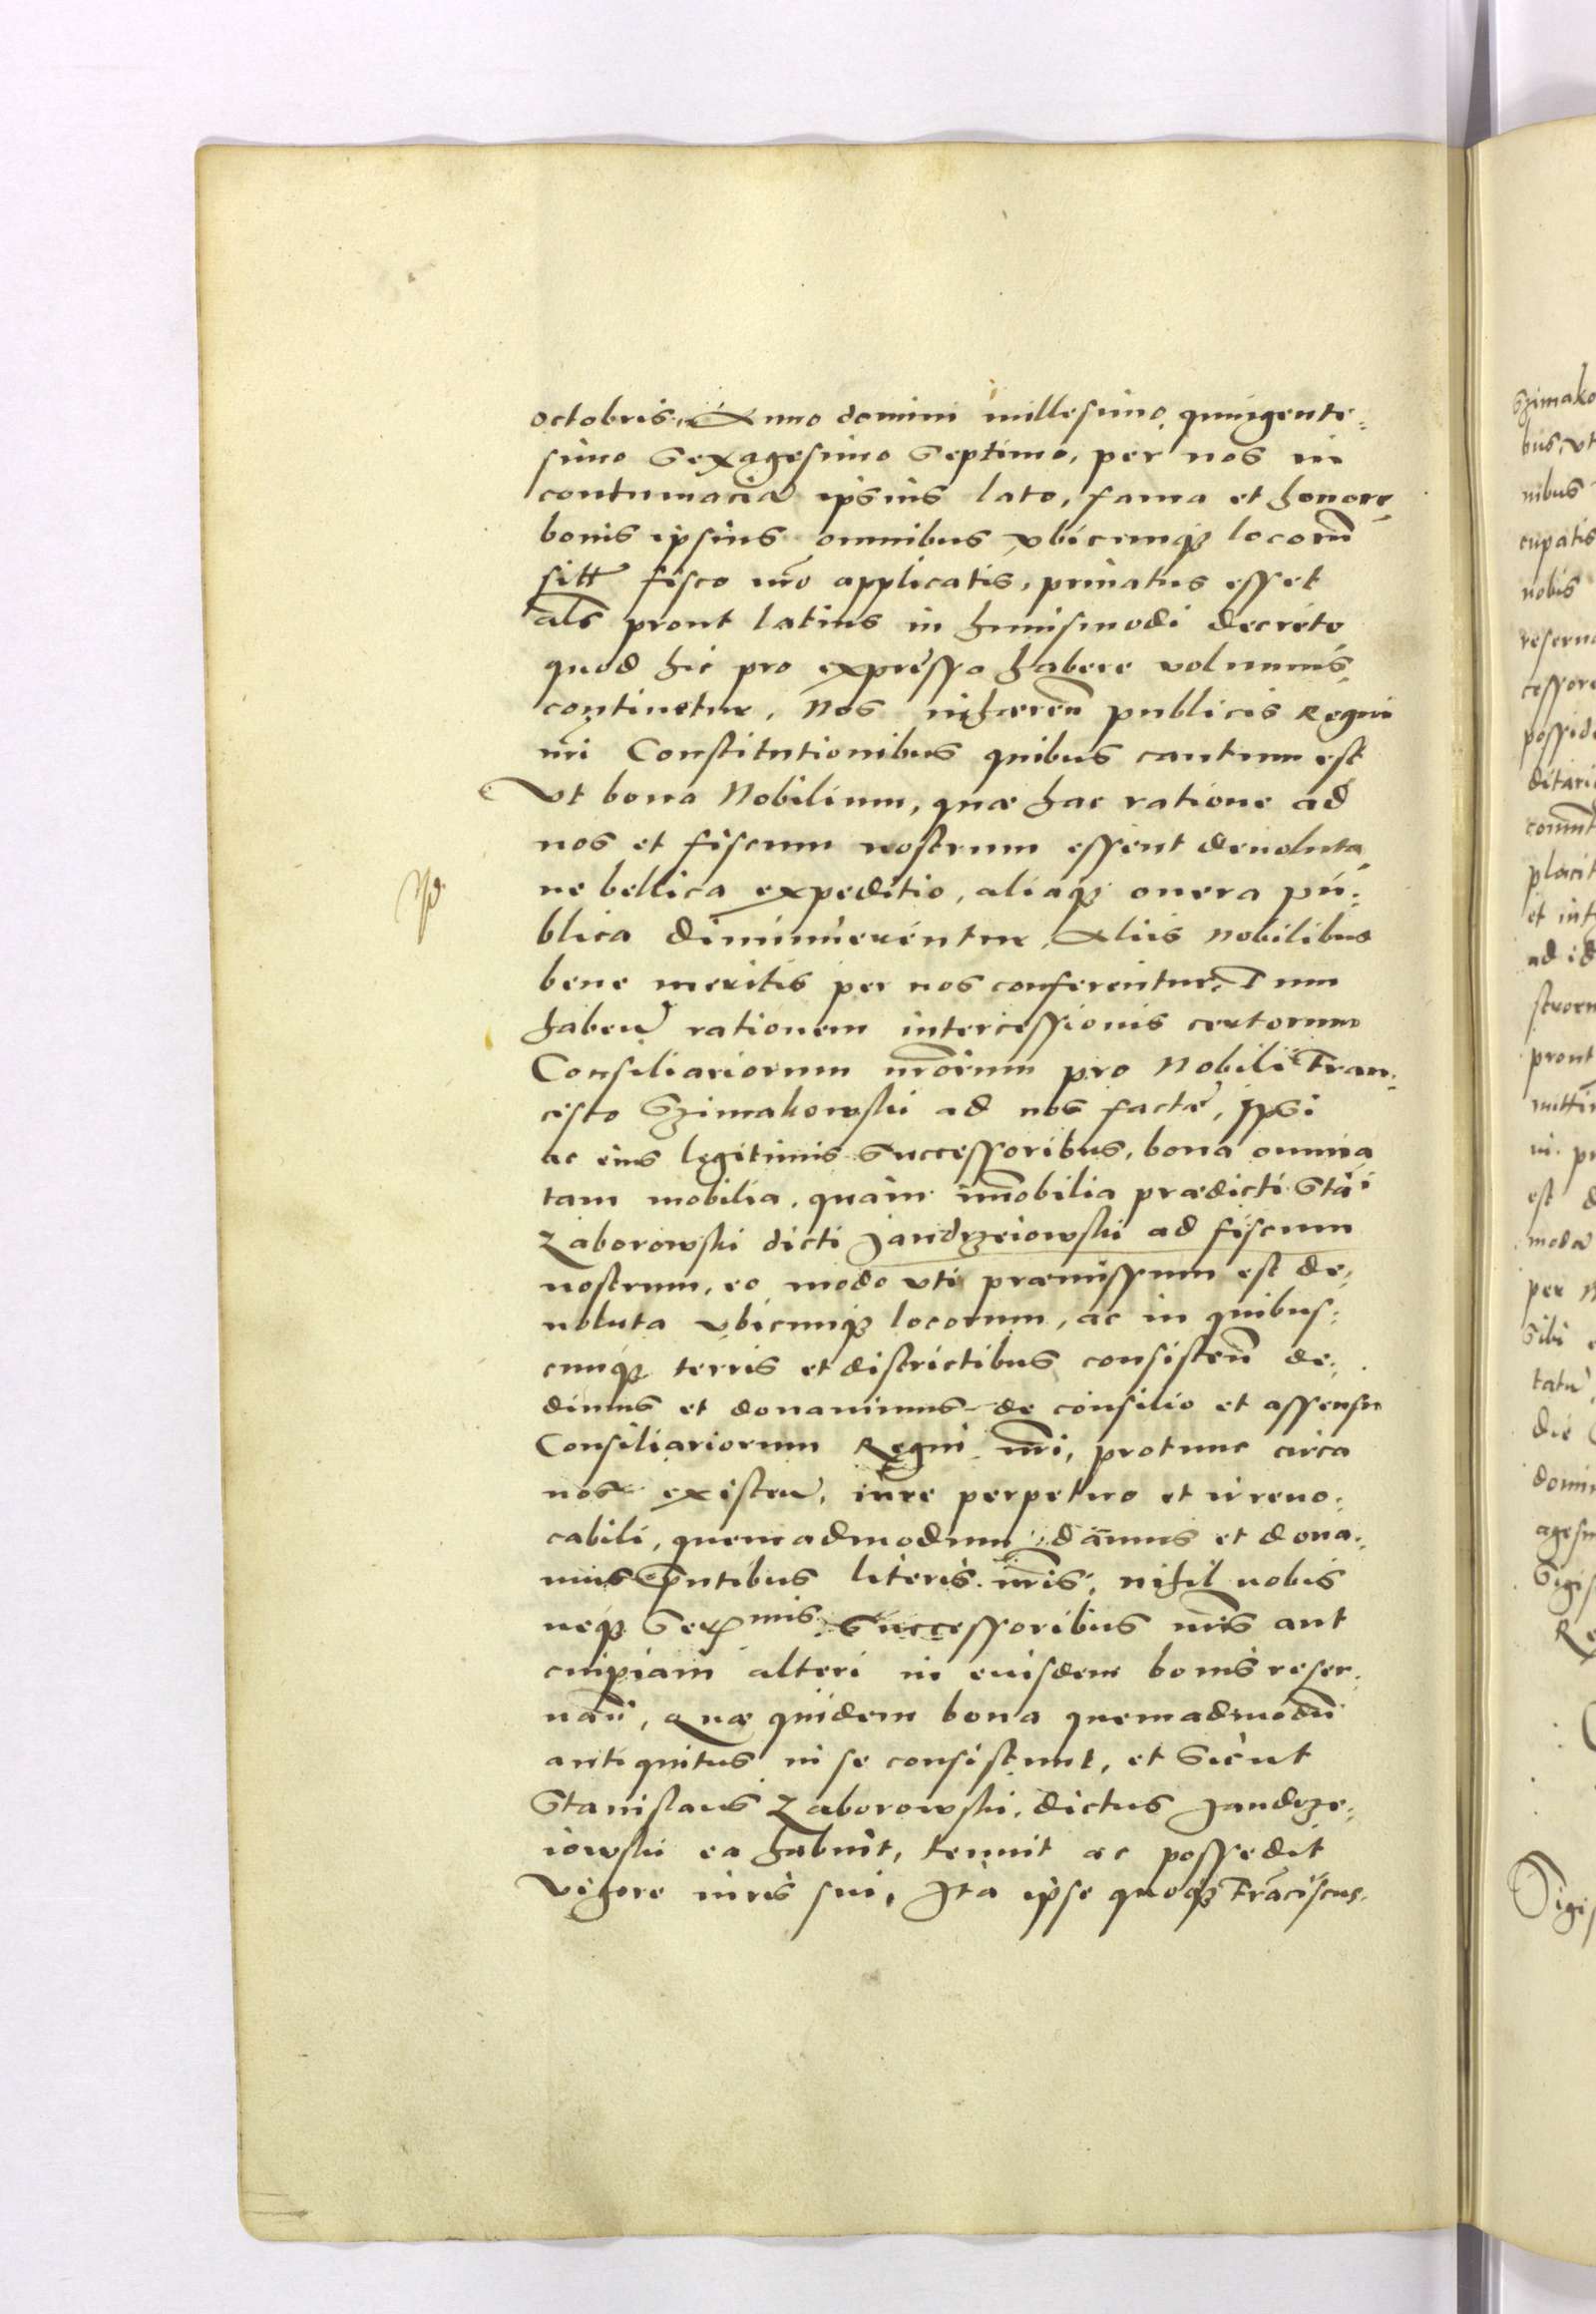 octobris. Anno domini millesimo, quingente-
simo Sexagesimo Septimo, per nos in
contumaciã ipsius lato, fama et honore
bonis ipsius omnibus vbicunqꝫ locorũ
sitt. fisco nrõ applicatis, priuatus esset
als prout latius in huiusmodi decreto
quod hic pro expresso habere volumus
continetur. Nos inhæreñ publicis Regni
nri Constitutionibus quibus cautum est
Vt bona Nobilium, quæ hac ratione ad
nos et fiscum nostrum essent deuoluta
ne bellica expeditio, aliaqꝫ onera pu-
blica diminuerentur, Aliis nobilibus
bene meritis per nos conferentur, Tum
habeñ rationem intercessionis certorum
Consiliariorum nrõrum pro Nobili Fran-
cisco Szimakowski ad nos factæ, ipsi
ac eius legitimis Successoribus, bona omnia
tam mobilia, quàm im̃obilia prædicti Stai
Zaborowski dicti Jandrzeiowski ad fiscum
nostrum, eo modo vti præmissum est de-
uoluta vbicunqꝫ locorum, ac in quibus-
cunqꝫ terris et districtibus consisteñ de-
dimus et donauimus de consilio et assensu
Consiliariorum Regni nri, protunc circa
nos existeñ, iure perpetuo et irreuo-
cabili, quemadmodum damus et dona-
mus pñtibus literis nris, nihil nobis
neqꝫ Serꝫmis Successoribus nris aut
cuipiam alteri in eiusdem bonis reser-
uañ, Quæ quidem bona quemadmodũ
antiquitus in se consistunt, et Sicut
Stanislaus Zaborowski, dictus Jandrze-
iowski ea habuit, tenuit ac possedit
vigore iuris sui, Ita ipse quoqꝫ Frãciscus
Szimako
bus, vt
nibus
cupatis
nobis
reserua
cessore
possid
ditari
com̃t
placit
et int
ad id
prout
est d
per n
Sibi
tatũ
die
domi
agesi
Sigis
Re
Sigis